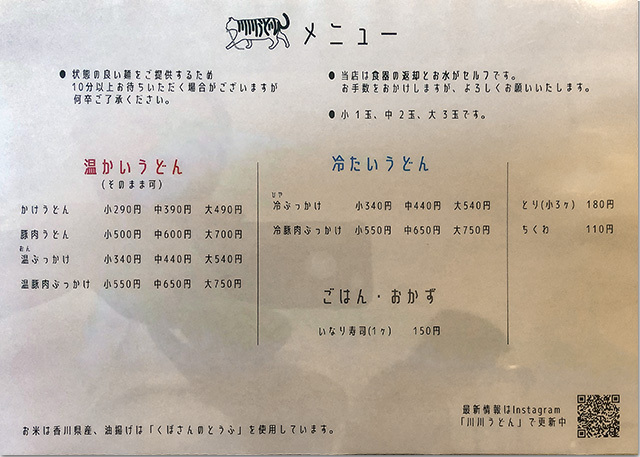 メニュー
● 状態の良い麺をご提供するため
10分以上お待ちいただく場合がございますが
何卒ご了承ください。
● 当店は食器の返却とお水がセルフです。
お手数をおかけしますが、よろしくお願いいたします。
● 小1玉、中2玉、大3玉です。
温かいうどん
(そのまま可)
かけうどん 小290円 中390円 大490円
豚肉うどん 小500円 中600円 大700円
おん
温ぶっかけ 小340円 中440円 大540円
温豚肉ぶっかけ 小550円 中650円 大750円
冷たいうどん
ひや
冷ぶっかけ 小340円 中440円 大540円
冷豚肉ぶっかけ 小550円 中650円 大750円
とり(小3ヶ) 180円
ちくわ 110円
ごはん・おかず
いなり寿司(1ヶ) 150円
お米は香川県産、油揚げは「くぼさんのとうふ」を使用しています。
最新情報はInstagram
「川川うどん」で更新中